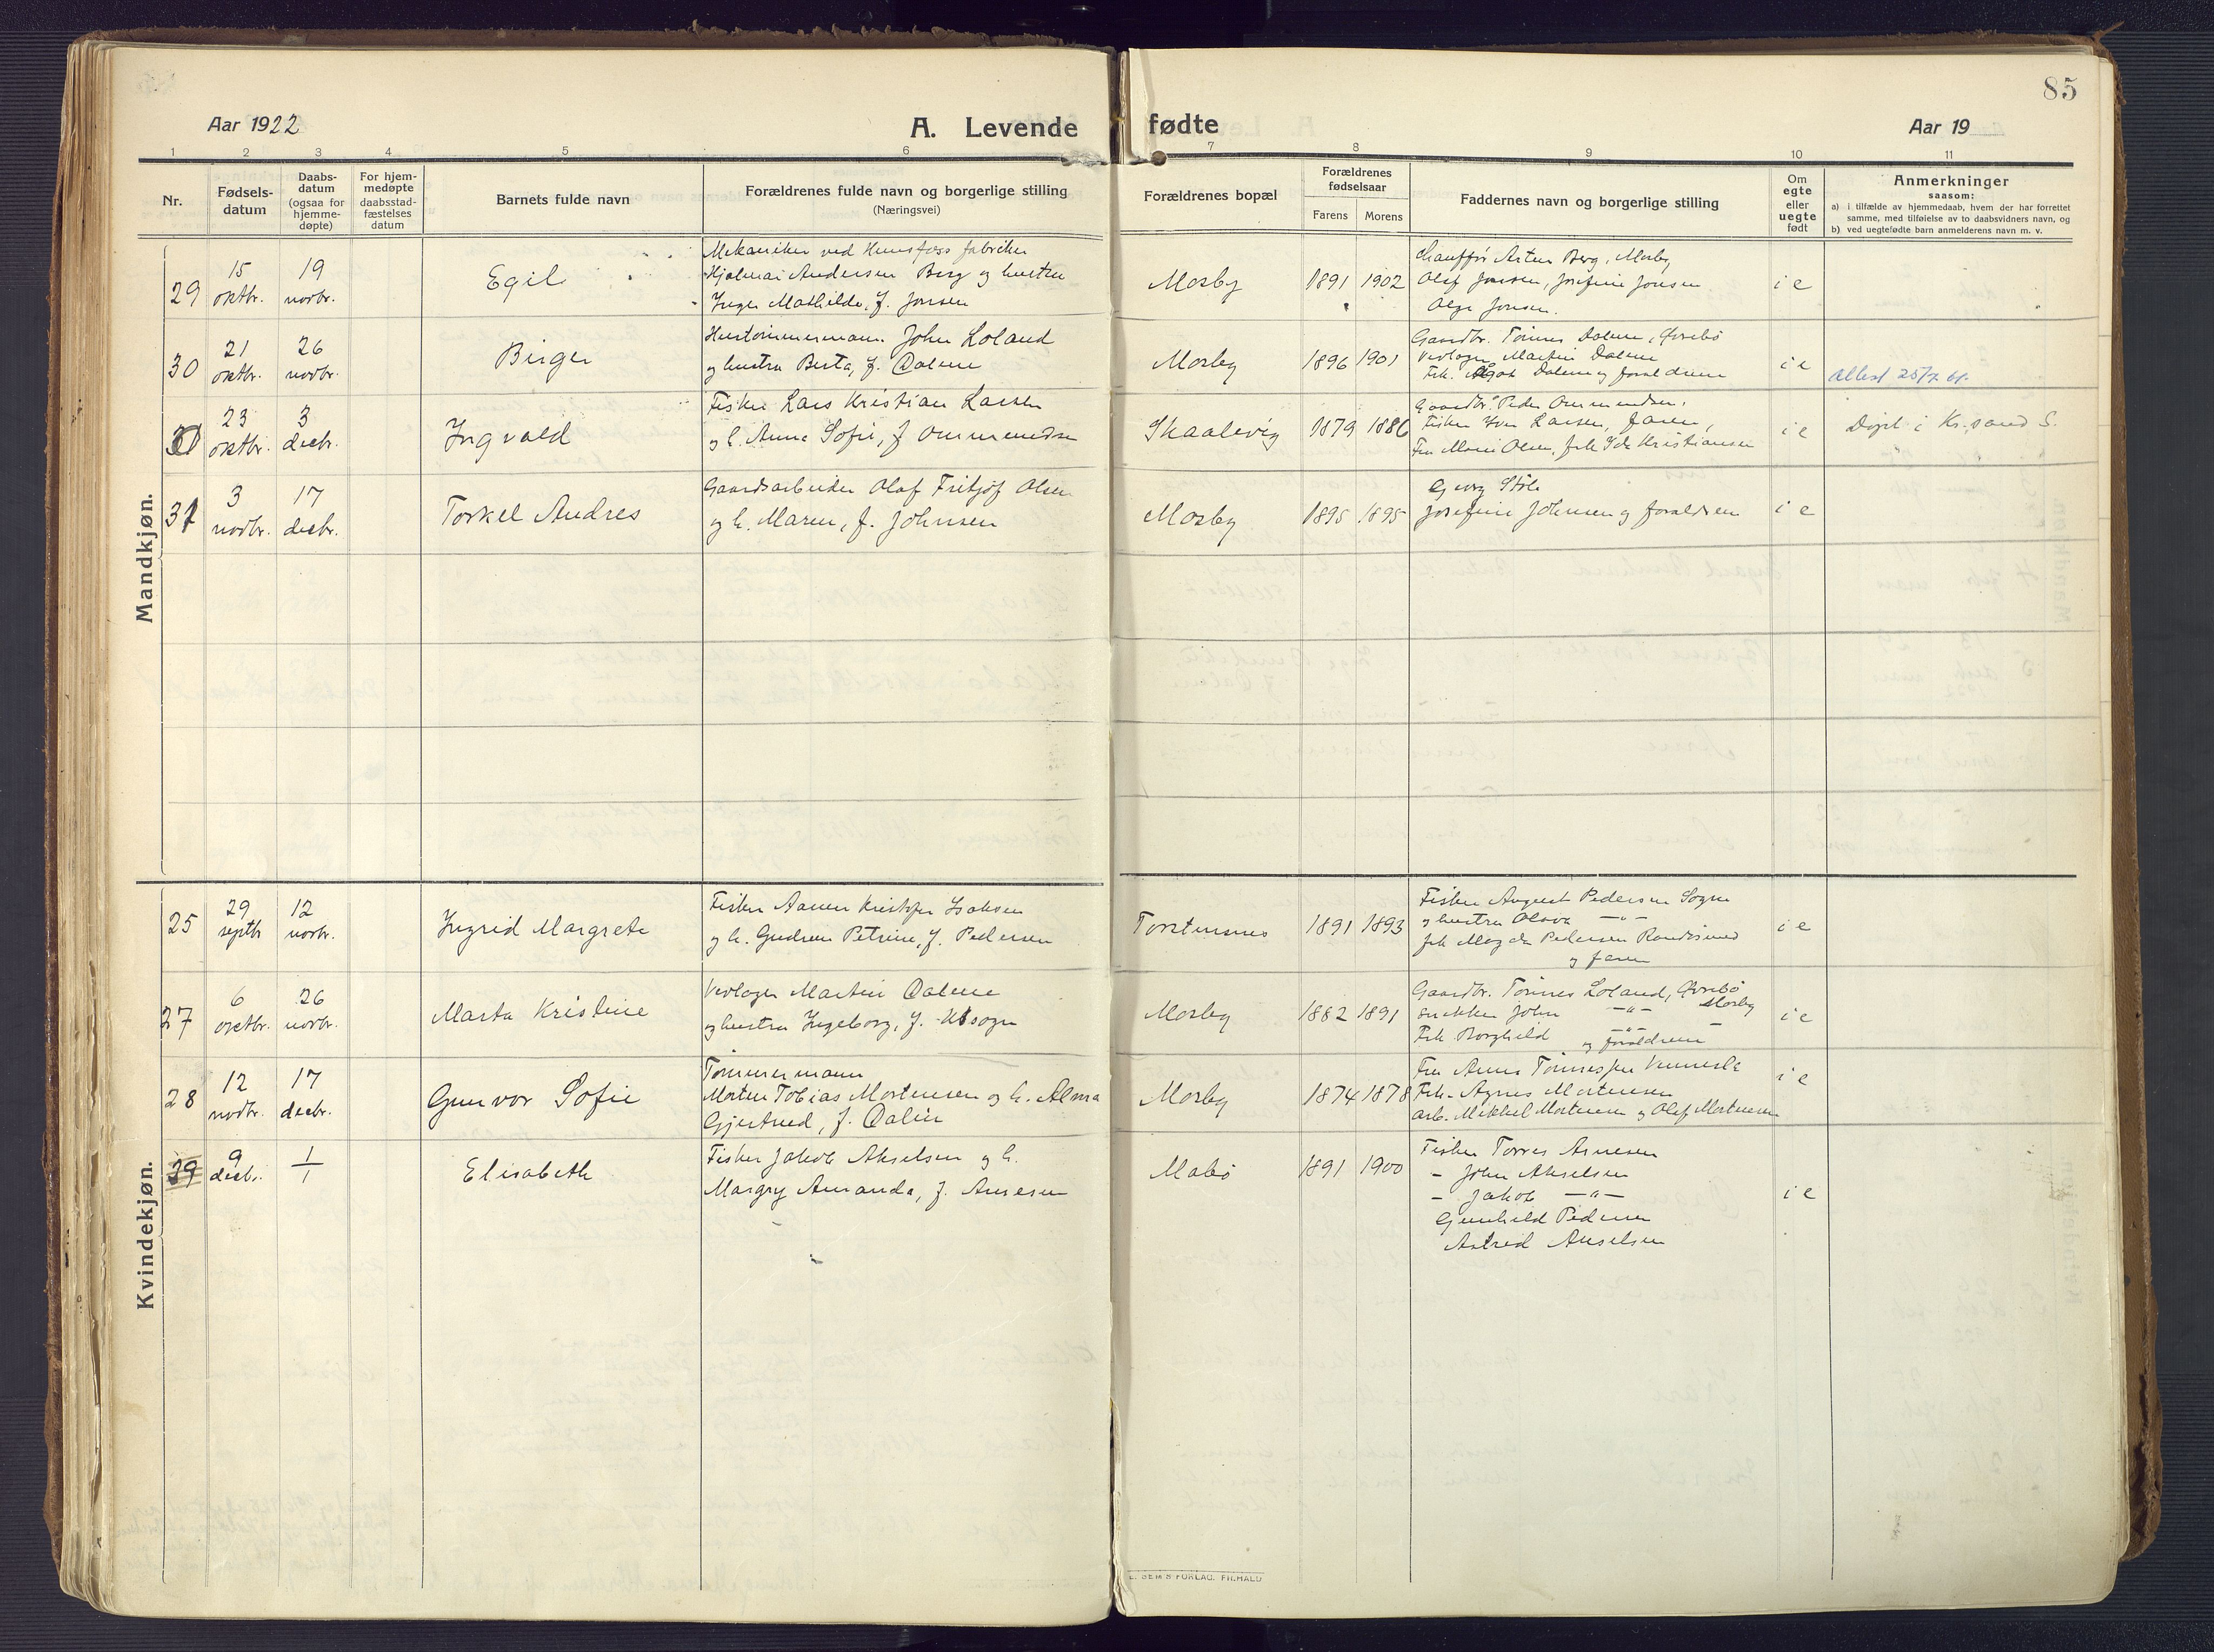 85
Aar 1922
A. Levende fødte
Aar 19
1 2 3 4 5 6 7 8 9 10 11
Nr.
Fødsels-
datum
Daabs-
datum
(ogsaa for
hjemme-
døpte)
For hjem-
medøpte
daabsstad-
fæstelses
datum
Barnets fulde navn
Forældrenes fulde navn og borgerlige stilling
(Næringsvei)
Forældrenes bopæl
Forældrenes
fødselsaar
Farens Morens
Faddernes navn og borgerlige stilling
Om
egte
eller
uegte
født
Anmerkninger
saasom:
a) i tilfælde av hjemmedaab, hvem der har forrettet
samme, med tilføielse av to daabsvidners navn, og
b) ved uegtefødte barn anmelderens navn m. v.
Mandkjøn.
29
15
oktbr.
19
novbr.
Egil
Mekaniker ved Hunsfoss fabriker
Hjalmar Andersen Berg og hustru
Inga Mathilde, f. Jonsen
Mosby
1891 1902
Chauffør Artur Berg, Mosby
Olaf Jonsen, Josefine Jonsen
Olga Jonsen.
i e
30
21
oktbr.
26
novbr.
Birger
Hustømmermann John Loland
og hustru Berta, f. Dalene
Mosby
1896 1901
Gaardbr. Tønnes Dalene, Øvrebø
Martin Dalene
Frk. Dalene og forældrene
i e
Attest 25/7 61.
31
23
oktbr.
3
decbr.
Ingvald
Fisker Lars Kristian Larsen
og h. Anna Sofie, f. Ommundsen
Skaalevig
1879 1886
Gaardbr. Peder Ommundsen,
Fisker Larsen, faren,
Fru Marie Olsen, frk Ida Kristiansen
i e
Døpt i Kr.sand S.
31
3
novbr.
17
decbr.
Torkel Andres
Gaardsarbeider Olaf Fritjof Olsen
og h. Maren, f. Johnsen
Mosby
1895 1895
Georg Støle
Josefine Johnsen og forældrene
i e
Kvindekjøn.
25
29
septbr
12
novbr.
Ingrid Margrete
Fisker Aanen Kristoffer Isaksen
og h. Gudrun Petrine, f. Pedersen
Torstensnes
1891 1893
Fisker August Pedersen Sogne
og hustru Olava —"—
frk Magda Pedersen Randøsund
og faren
i e
27
6
oktbr.
26
novbr.
Marta Kristine
Martin Dalene
og hustru Ingeborg, f.
Mosby
1882 1891
Gaardbr. Tønnes Loland, Øvrebø
Snekker John —"— Mosby
Frk. Borghild —"— —
og forældrene
i e
28
12
novbr.
17
decbr.
Gunvor Sofie
Tømmermann
Morten Tobias Mortensen og h. Alma
Gjertrud, f. Dalen
Mosby
1874 1878
Fru Anna Tønnessen Vennesla
Frk. Agnes Mortensen
Arb. Mikkel Mortensen og Olaf Mortensen
i e
29
9
decbr.
1
1
Elisabeth
Fisker Jakob Akselsen og h.
Margry Amanda, f. Arnesen
Mabø
1891 1900
Fisker Torres Arnesen
– John Akselsen
– Jakob —"—
Gunhild Pedersen
Astrid Akselsen
i e
E. SEM'S FORLAG. FR.HALD